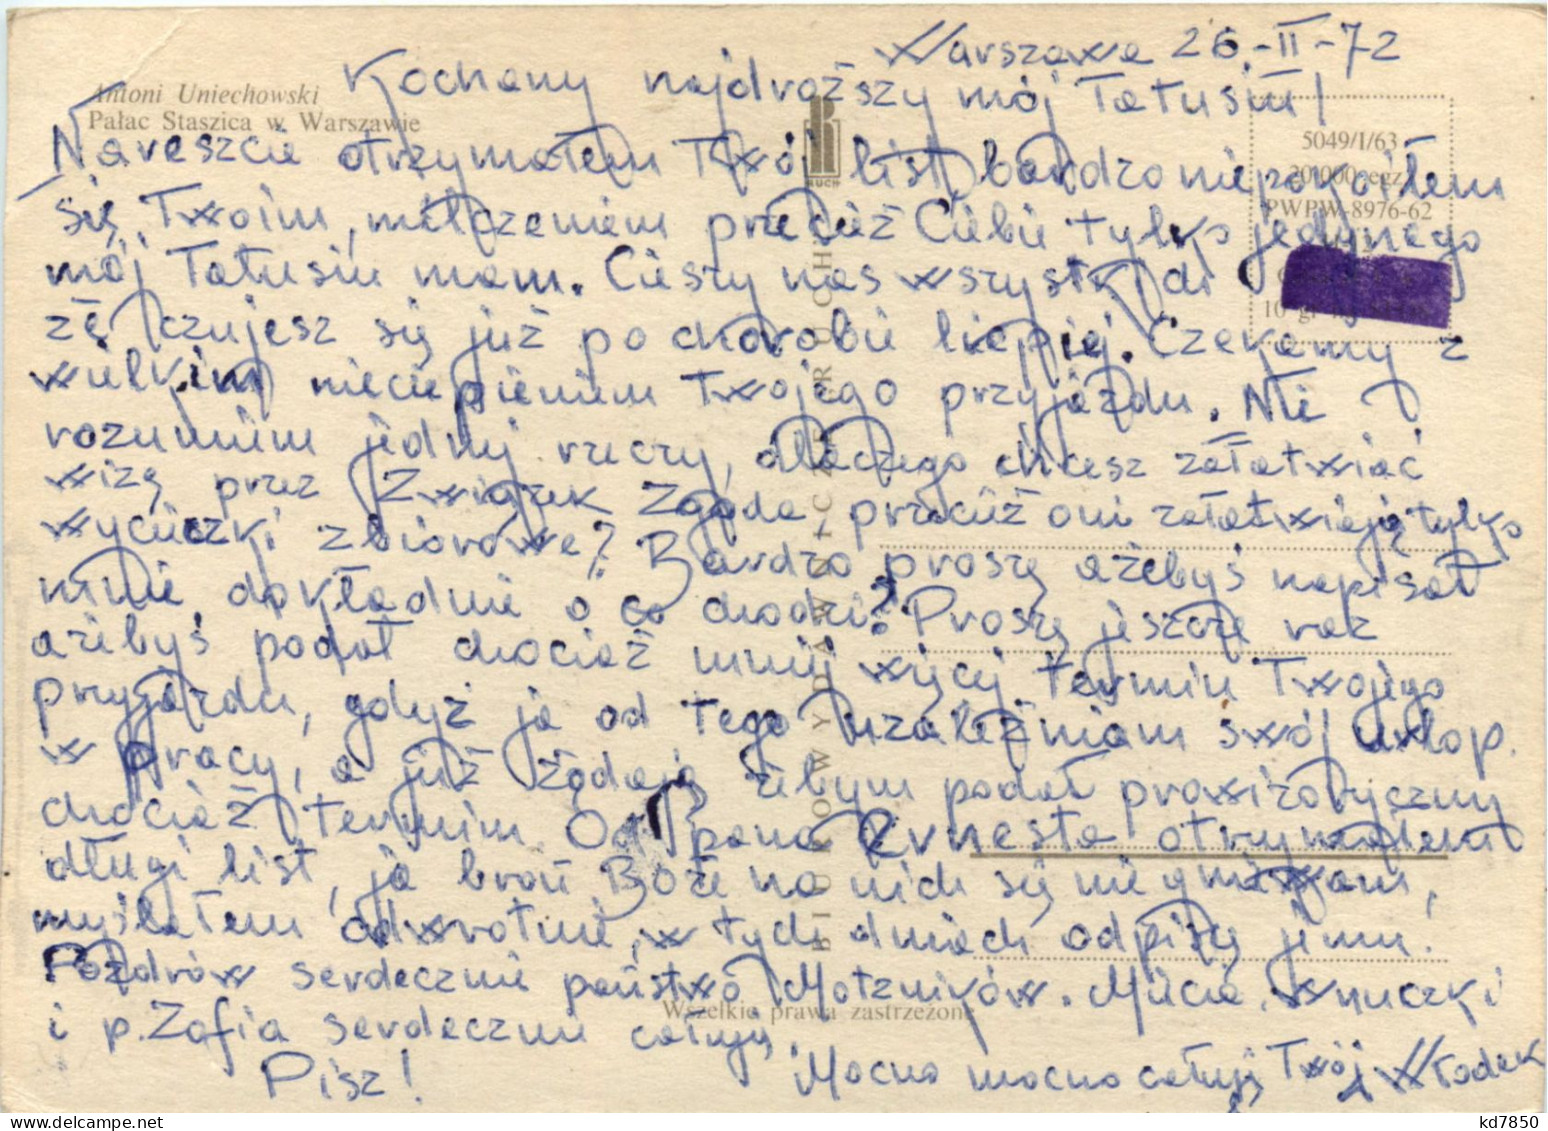 Warszawa 26.-II-72
Kochany najdroższy mój Tatusiu!
Antoni Uniechowski
Pałac Staszica w Warszawie
RUCH
5049/I/63
20.000 egz.
PWPW-8976-62
Nareszcie otrzymałem Twój list, bardzo niepokoiłem
się Twoim milczeniem przecież Ciebie tylko jedynego
mój Tatusiu mam. Cieszy nas wszystkich
że czujesz się już po chorobie lepiej. Czekamy z
wielkim niecierpieniem Twojego przyjazdu. Nie
rozumiem jednej rzeczy, dlaczego chcesz załatwiać
wizę przez Związek Zgoda, przecież oni załatwiają tylko
wycieczki zbiorowe? Bardzo proszę ażebyś napisał
mnie dokładnie o co chodzi? Proszę jeszcze raz
ażebyś podał chociaż mniej więcej termin Twojego
przyjazdu, gdyż ja od tego uzależniam swój urlop.
w pracy, a już żądają żebym podał prowizoryczny
chociaż termin. Od pana Ernesta otrzymałem
długi list, ja broń Boże na nich się nie gniewam,
myślałem odwrotnie, w tych dniach odpiszę jemu.
Pozdrów serdecznie państwo Motzników. Mucia, wnuczki
i p. Zofia serdecznie całują.
Pisz!
Mocno mocno całuję Twój Włodek
BIURO WYDAWNICZE RUCH
Wszelkie prawa zastrzeżone
kd7850